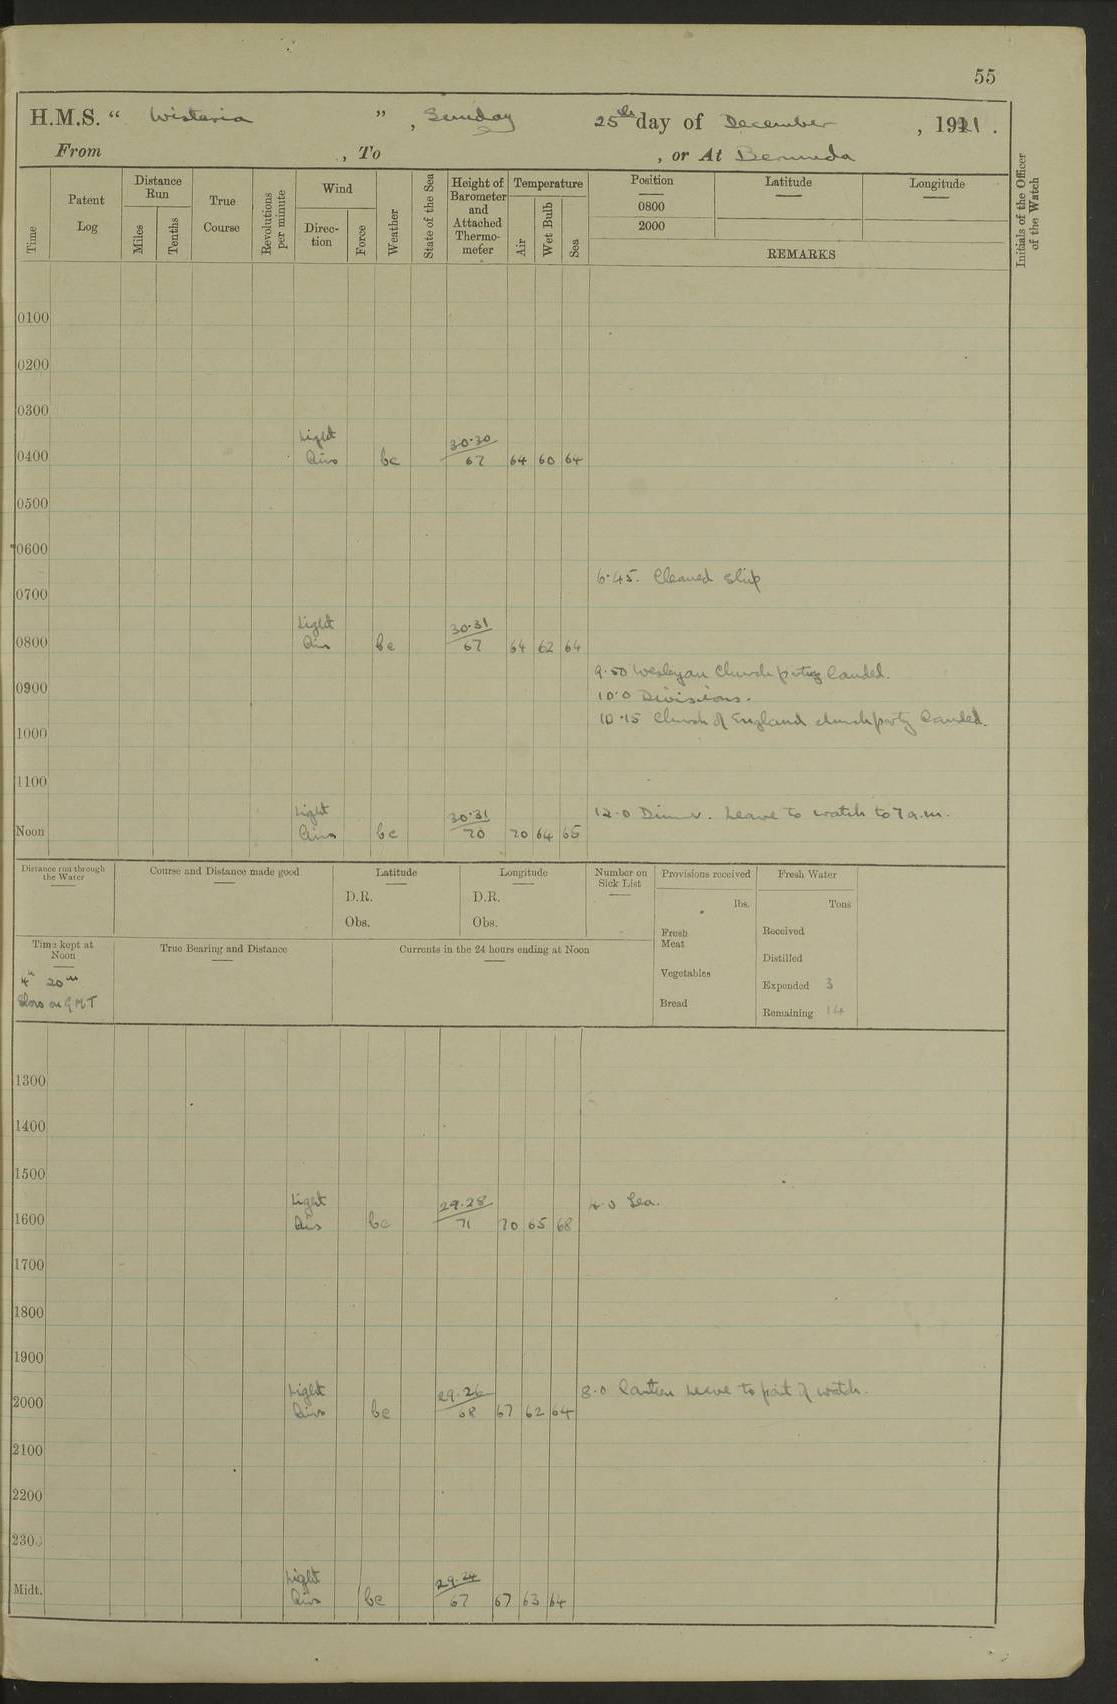 55
H.M.S. “ Wisteria ” , Sunday 25th day of December , 1921 .
From , To , or At Bermuda
Time
Patent Log
Distance Run
Miles
Tenths
True Course
Revolutions per minute
Wind
Direc-tion
Force
Weather
State of the Sea
Height of Barometer and Attached Thermo-meter
Temperature
Air
Wet Bulb
Sea
Position
0800
2000
Latitude
Longitude
REMARKS
Initials of the Officer of the Watch
0100
0200
0300
Light 30·30
0400 Airs bc 67 64 60 64
0500
0600
6·45. Cleaned ship
0700
Light 30·31
0800 Airs bc 67 64 62 64
9·50 Wesleyan Church party landed.
0900
10·0 Divisions.
10·15 Church of England church party landed.
1000
1100
Light 30·31 12·0 Dinner. Leave to watch to 7 a.m.
Noon Airs bc 70 70 64 65
Distance run through the Water
Course and Distance made good
Latitude
D.R.
Obs.
Longitude
D.R.
Obs.
Number on Sick List
Provisions received
lbs.
Fresh Meat
Vegetables
Bread
Fresh Water
Tons
Received
Distilled
Expended 3
Remaining 14
Time kept at Noon
4h 20m
Slow on GMT
True Bearing and Distance
Currents in the 24 hours ending at Noon
1300
1400
1500
Light 29·28 4·0 Tea.
1600 Airs bc 71 70 65 68
1700
1800
1900
Light 29·26 8·0 Canteen leave to part of watch.
2000 Airs bc 68 67 62 64
2100
2200
2300
Light 29·24
Midt. Airs bc 67 67 63 64